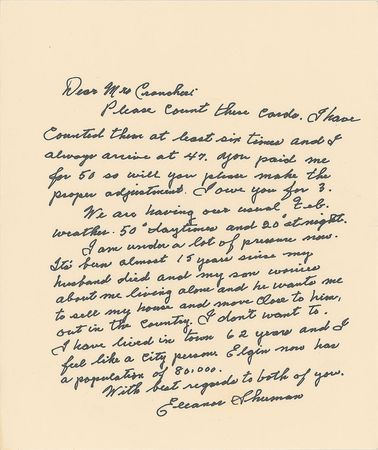 Dear Mrs Croncheri
Please count these cards. I have
counted them at least six times and I
always arrive at 47. You paid me
for 50 so will you please make the
proper adjustment. I owe you for 3.
We are having our usual Feb.
weather. 50° daytimes and 20° at night.
I am under a lot of pressure now.
It's been almost 15 years since my
husband died and my son worries
about me living alone and he wants me
to sell my house and move close to him,
out in the country. I don't want to.
I have lived in town 62 years and I
feel like a city person. Elgin now has
a population of 80,000.
With best regards to both of you.
Eleanor Shuman